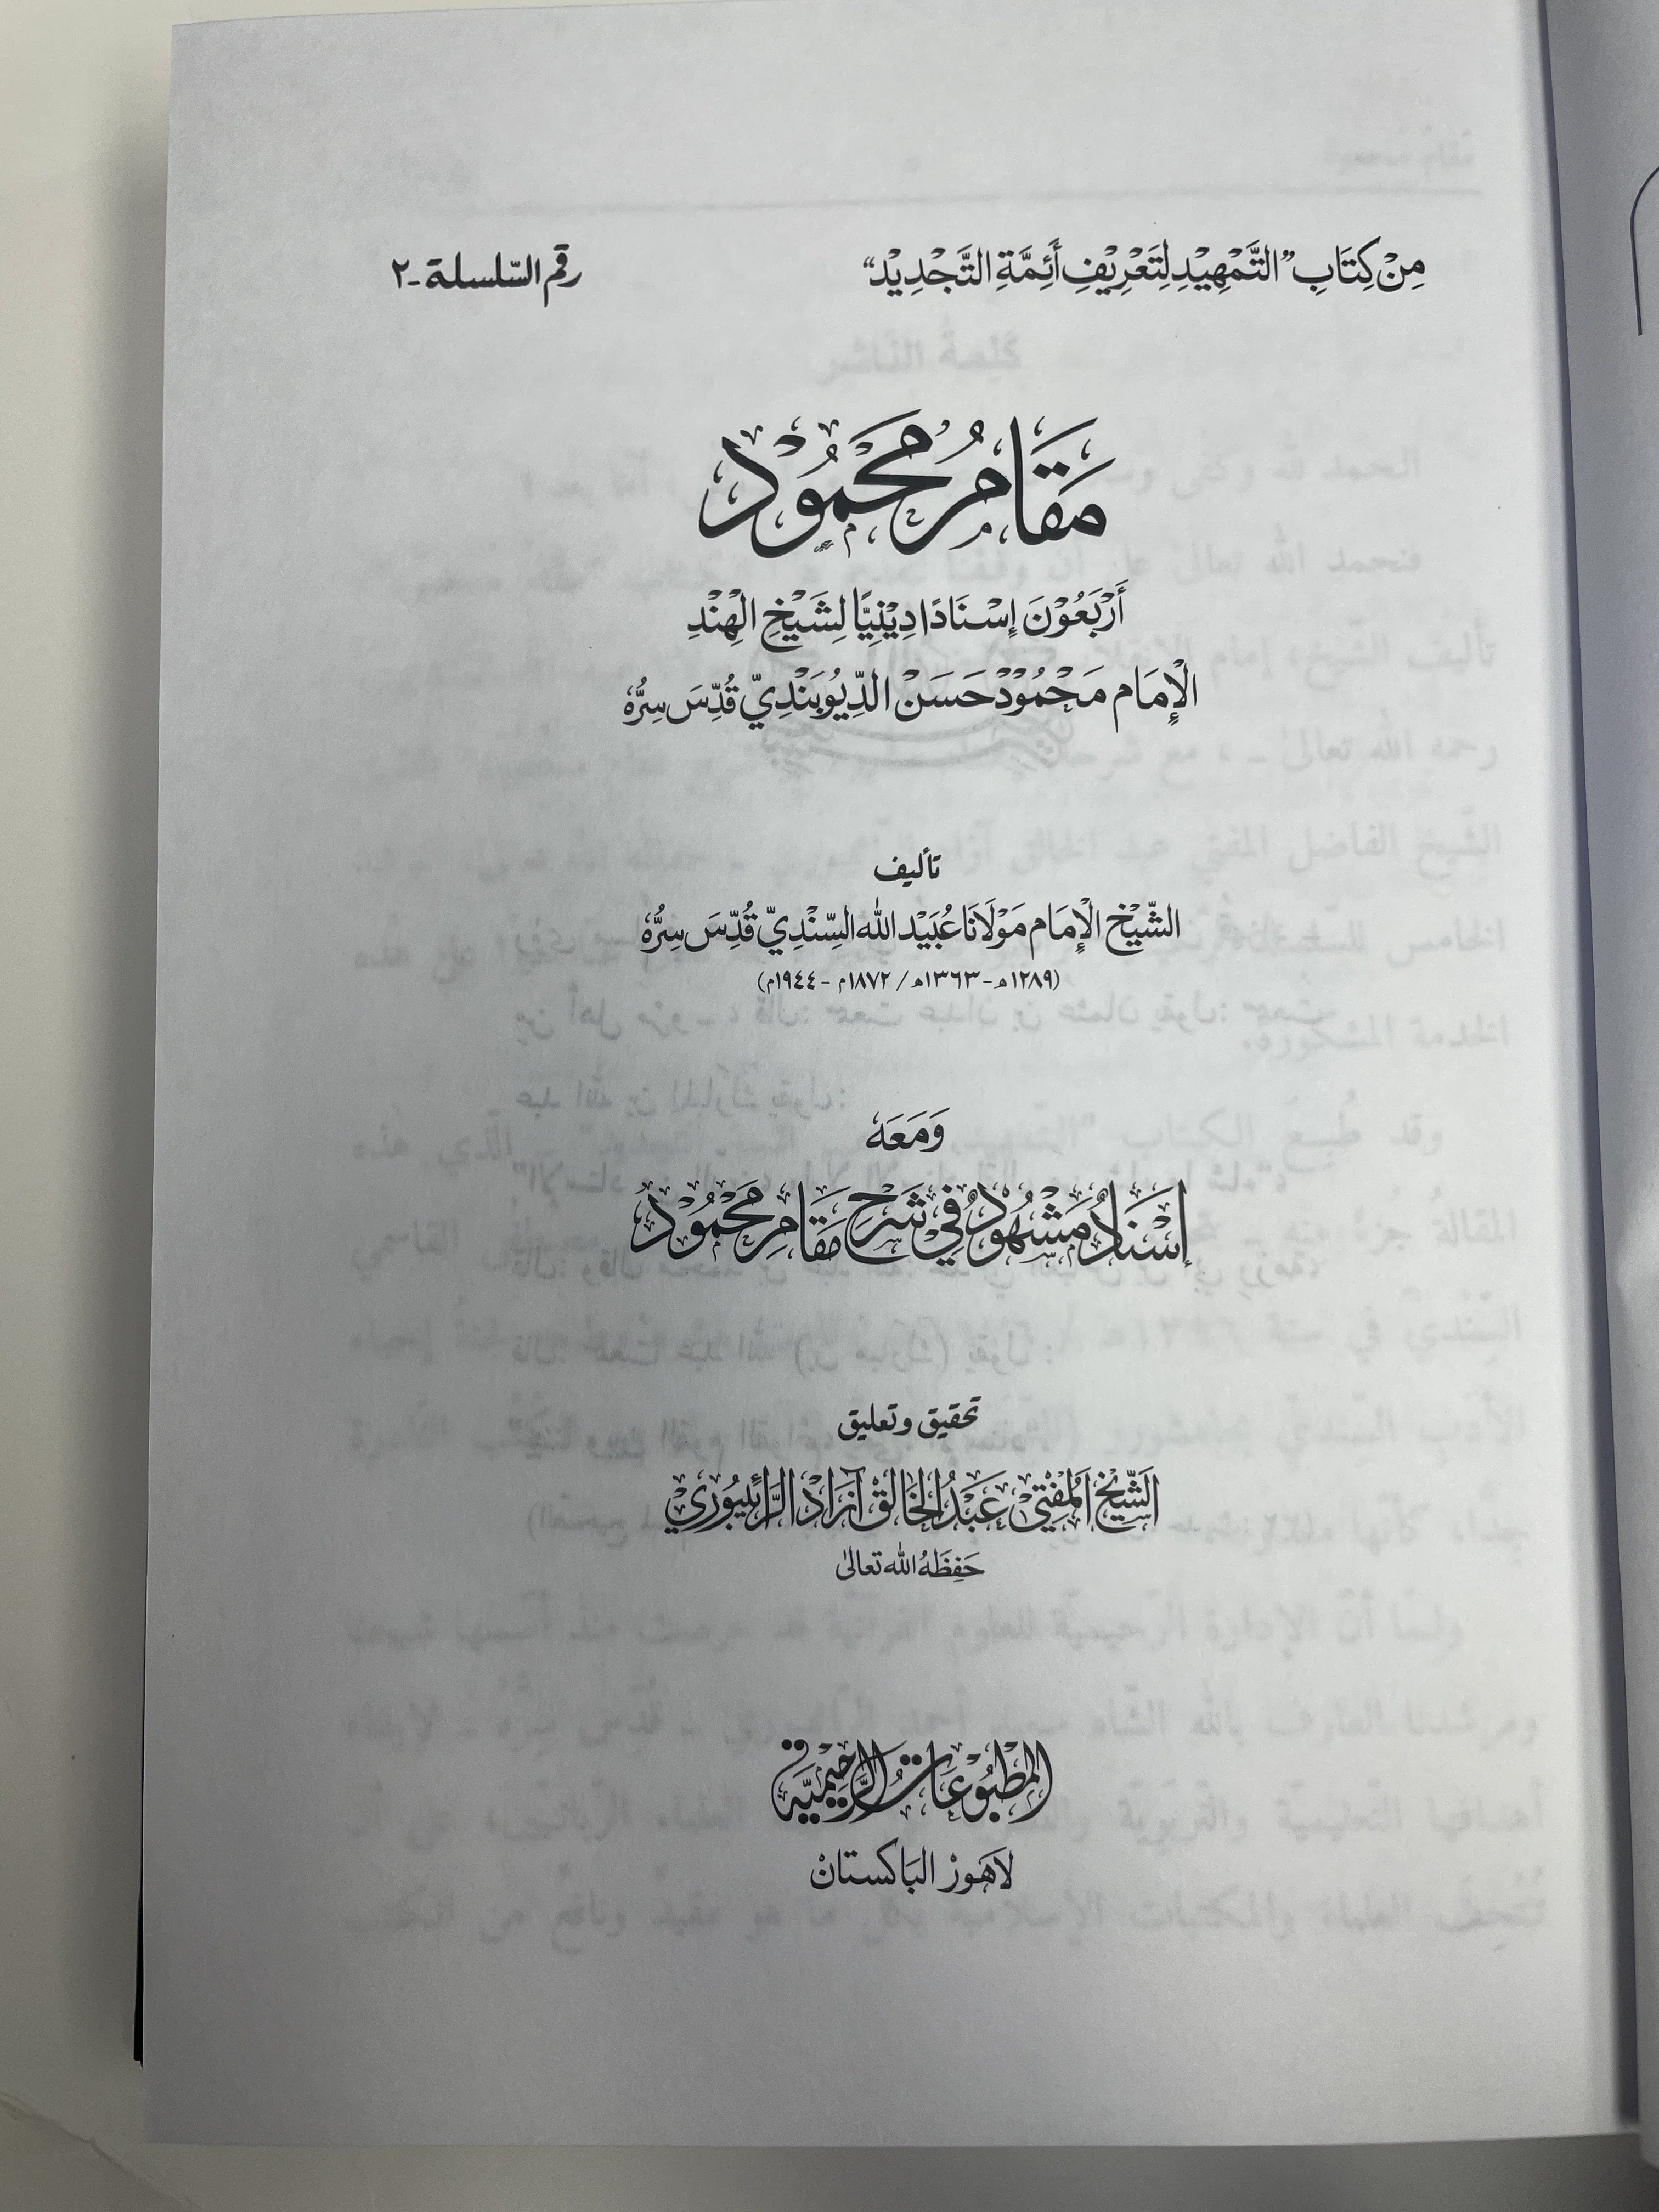 مِنْ كِتَابِ "التَّمْهِيْدِ لِتَعْرِيْفِ أَئِمَّةِ التَّجْدِيْدِ"
رقم السّلسلة ـ ٢
مَقَامُ مَحْمُوْدٍ
أَرْبَعُوْنَ إِسْنَادًا دِيْنِيًّا لِشَيْخِ الْهِنْدِ
الْإِمَام مَحْمُوْد حَسَنْ الدِّيُوبَنْدِيّ قُدِّسَ سِرُّهُ
تأليف
الشَّيْخ الْإِمَام مَوْلَانَا عُبَيْد الله السِّنْدِيّ قُدِّسَ سِرُّهُ
(١٢٨٩هـ - ١٣٦٣هـ / ١٨٧٢م - ١٩٤٤م)
وَمَعَهُ
إِسْنَادٌ مَشْهُوْدٌ فِيْ شَرْحِ مَقَامِ مَحْمُوْدٍ
تحقيق وتعليق
الشَّيْخ الْمُفْتِيْ عَبْدُ الْخَالِقْ آزَادْ الرَّائِيبُورِيْ
حَفِظَهُ الله تعالىٰ
المَطْبُوْعَاتُ الرَّحِيْمِيَّة
لَاهَوْرْ البَاكستانْ